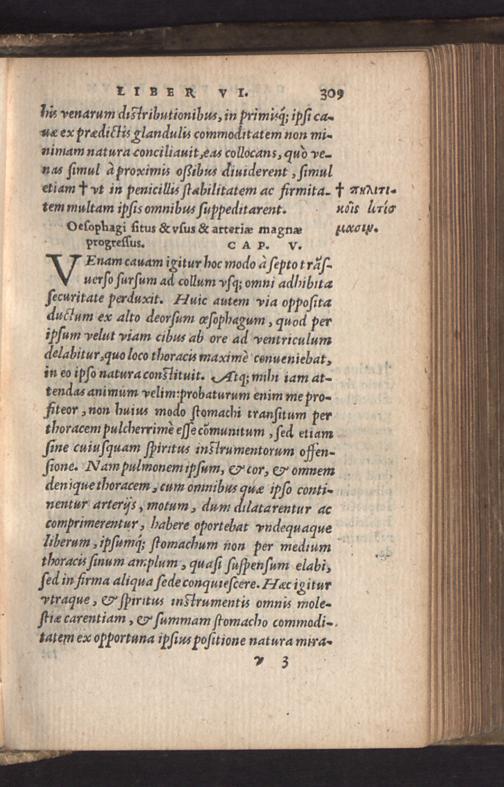 LIBER VI. 309
his venarum distributionibus, in primisq; ipsi ca-
uæ ex prædictis glandulis commoditatem non mi-
nimam natura conciliauit, eas collocans, quò ve-
nas simul à proximis ossibus diuiderent, simul
etiam † vt in penicillis stabilitatem ac firmita-
tem multam ipsis omnibus suppeditarent.
† πηλιτι-
κοῖς
μασιν.
Oesophagi situs & vsus & arteriæ magnæ
progressus. CAP. V.
VEnam cauam igitur hoc modo à septo trãs-
uerso sursum ad collum vsq; omni adhibita
securitate perduxit. Huic autem via opposita
ductum ex alto deorsum œsophagum, quod per
ipsum velut viam cibus ab ore ad ventriculum
delabitur, quo loco thoracis maximè conueniebat,
in eo ipso natura constituit. Atq; mihi iam at-
tendas animum velim: probaturum enim me pro-
fiteor, non huius modo stomachi transitum per
thoracem pulcherrimè esse cõmunitum, sed etiam
sine cuiusquam spiritus instrumentorum offen-
sione. Nam pulmonem ipsum, & cor, & omnem
denique thoracem, cum omnibus quæ ipso conti-
nentur arterijs, motum, dum dilatarentur ac
comprimerentur, habere oportebat vndequaque
liberum, ipsumq; stomachum non per medium
thoracis sinum amplum, quasi suspensum elabi,
sed in firma aliqua sede conquiescere. Hæc igitur
vtraque, & spiritus instrumentis omnis mole-
stiæ carentiam, & summam stomacho commodi-
tatem ex opportuna ipsius positione natura mira-
v 3